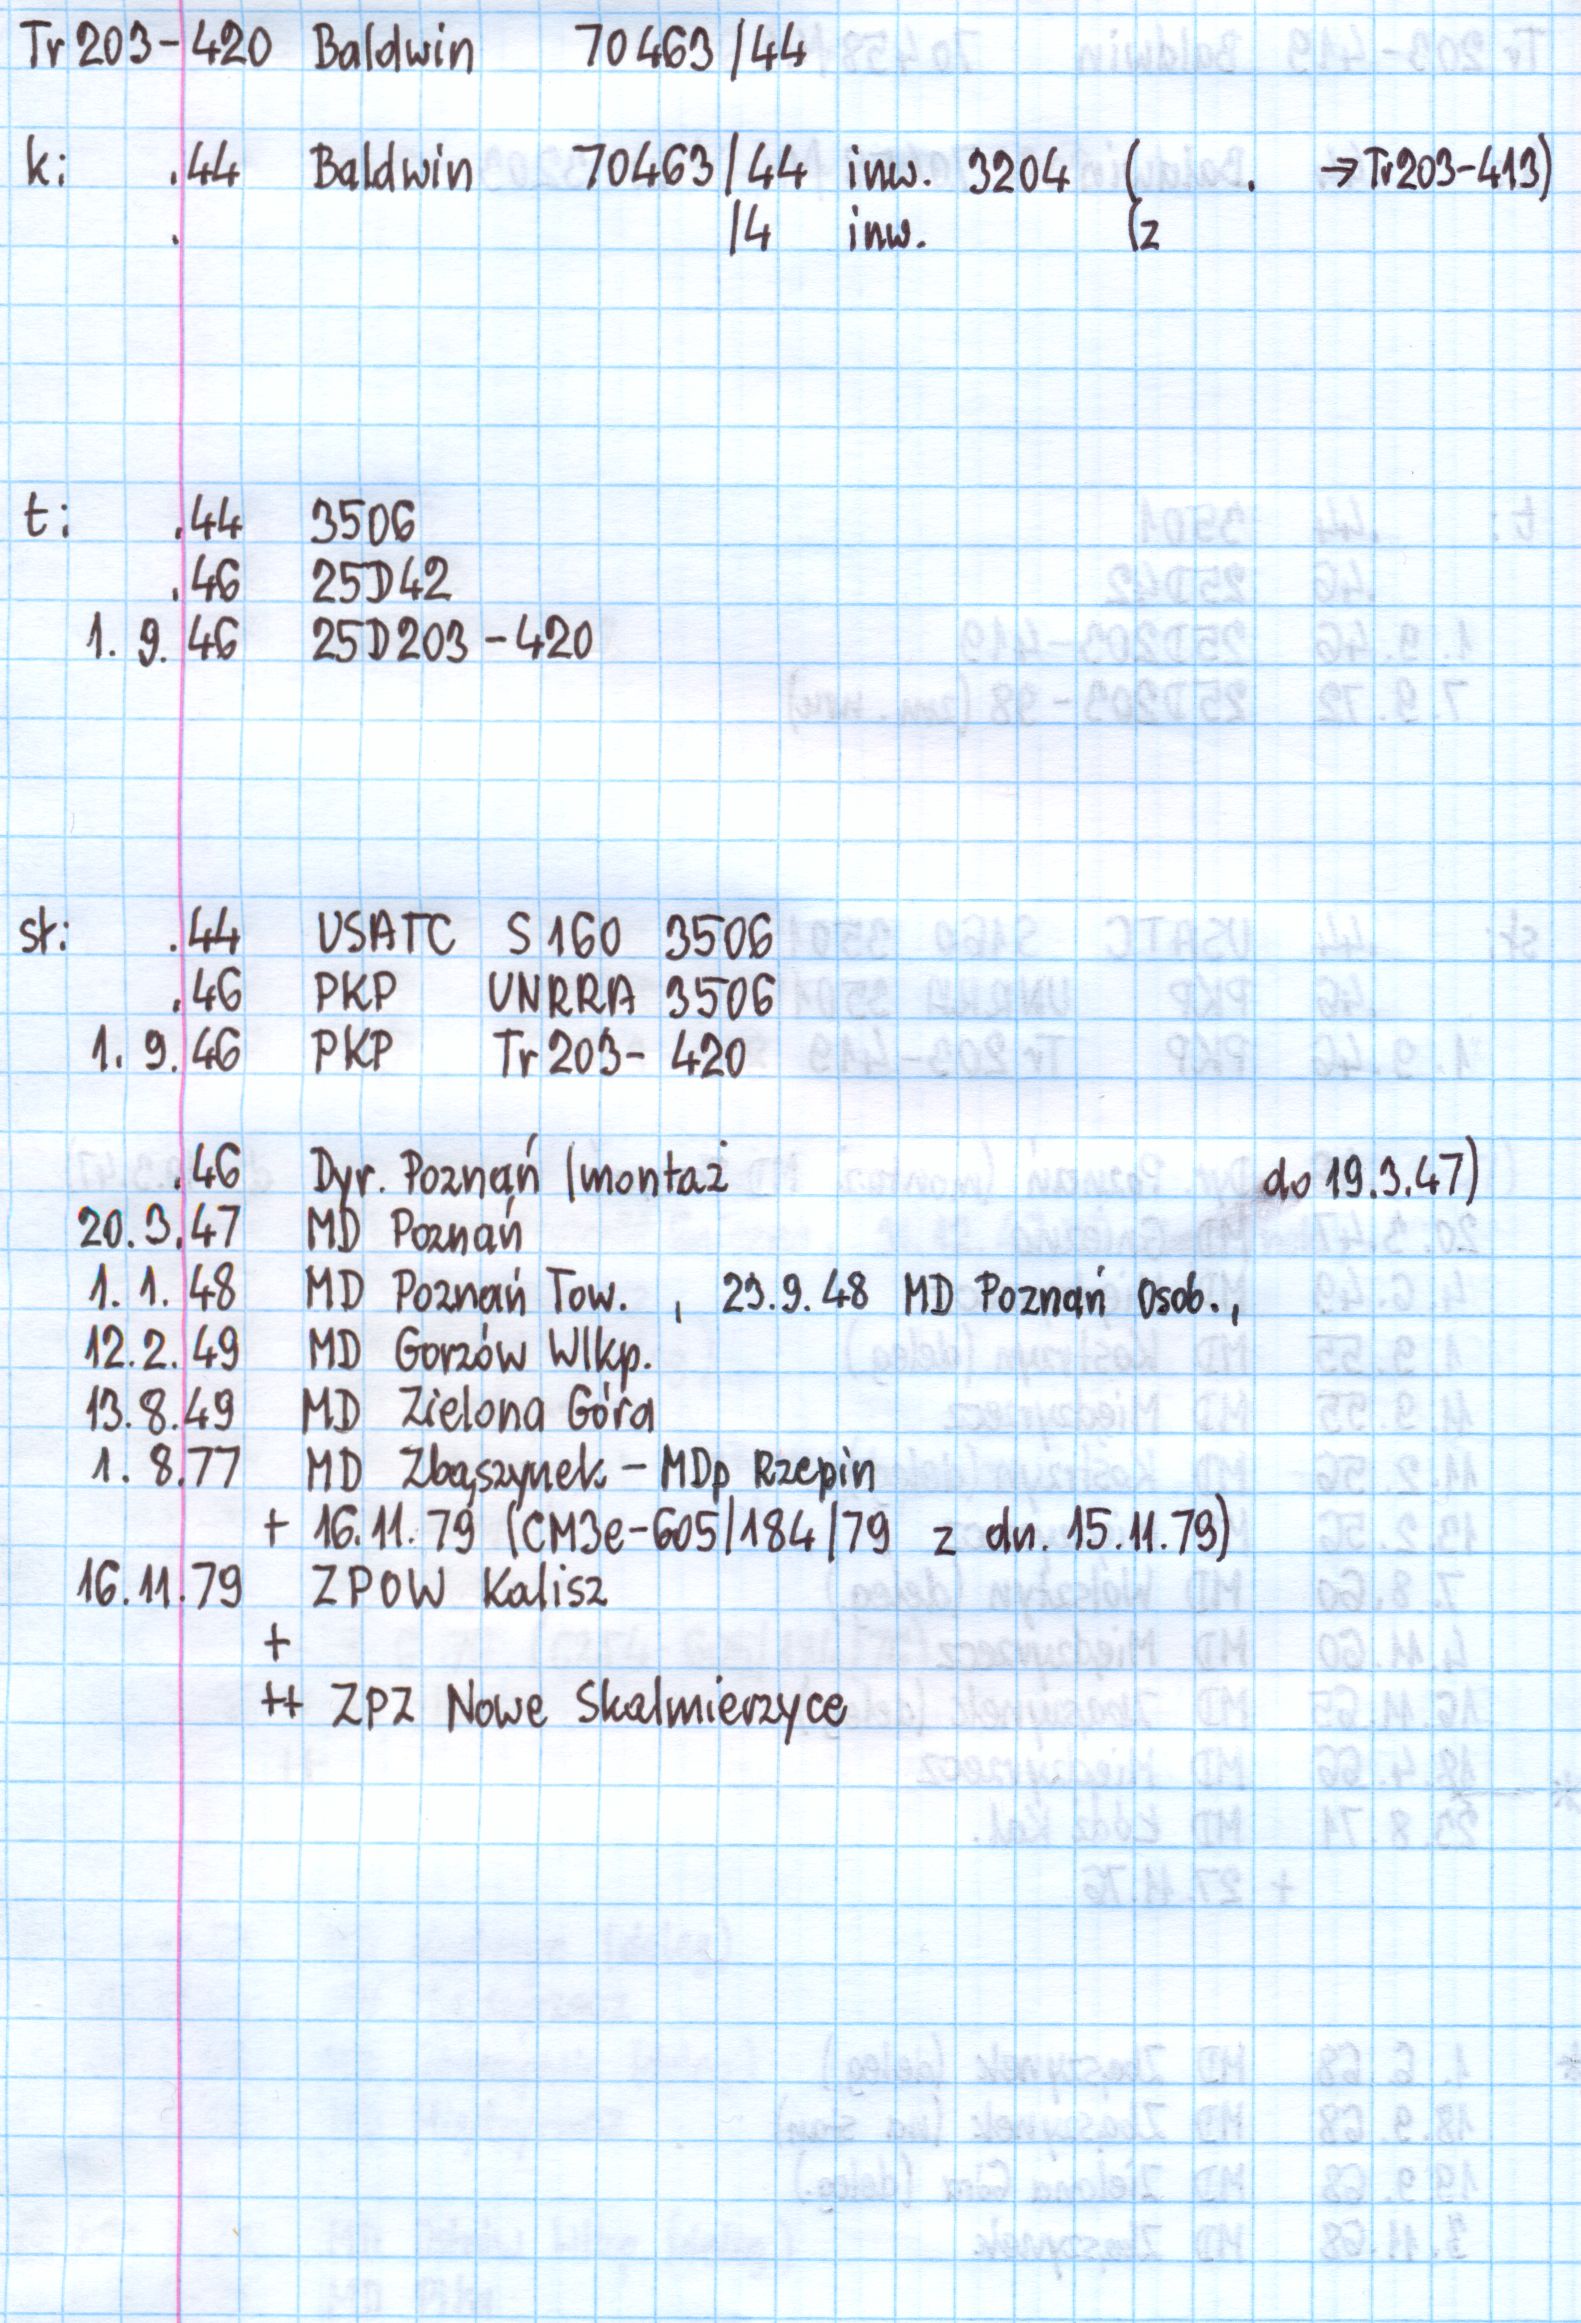 Tr203-420 Baldwin 70463/44
k: .44 Baldwin 70463/44 inw. 3204 ( . →Tr203-413)
. /4 inw. (z
t: .44 3506
.46 25D42
1.9.46 25D203-420
st: .44 USATC S160 3506
.46 PKP UNRRA 3506
1.9.46 PKP Tr203-420
.46 Dyr. Poznań (montaż do 19.3.47)
20.3.47 MD Poznań
1.1.48 MD Poznań Tow. , 29.9.48 MD Poznań Osob.,
12.2.49 MD Gorzów Wlkp.
13.8.49 MD Zielona Góra
1.8.77 MD Zbąszynek - MDp Rzepin
+ 16.11.79 (CM3e-605/184/79 z dn. 15.11.79)
16.11.79 ZPOW Kalisz
+
++ ZPZ Nowe Skalmierzyce